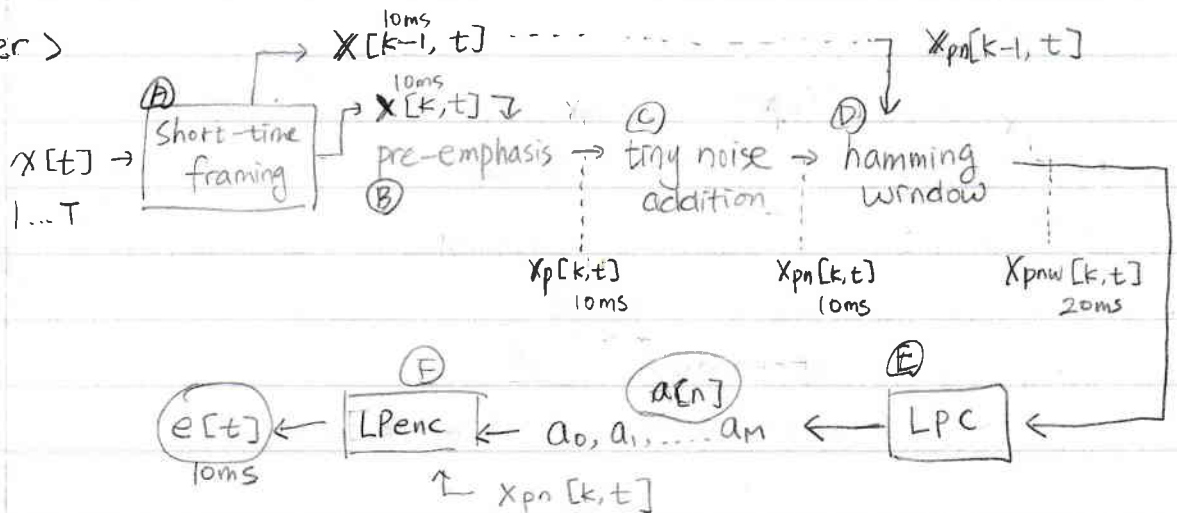 er>
10ms
X[k-1, t]
Xpn[k-1, t]
10ms
X[k, t]
Ⓐ
short-time
framing
x[t] →
1...T
Ⓑ
pre-emphasis →
Ⓒ
tiny noise
addition
→
Ⓓ
hamming
window
Xp[k, t]
10ms
Xpn[k, t]
10ms
Xpnw[k, t]
20ms
Ⓔ
LPC
a[n]
← a0, a1, .... aM ←
Ⓕ
LPenc
Xpn [k, t]
e[t] ←
10ms